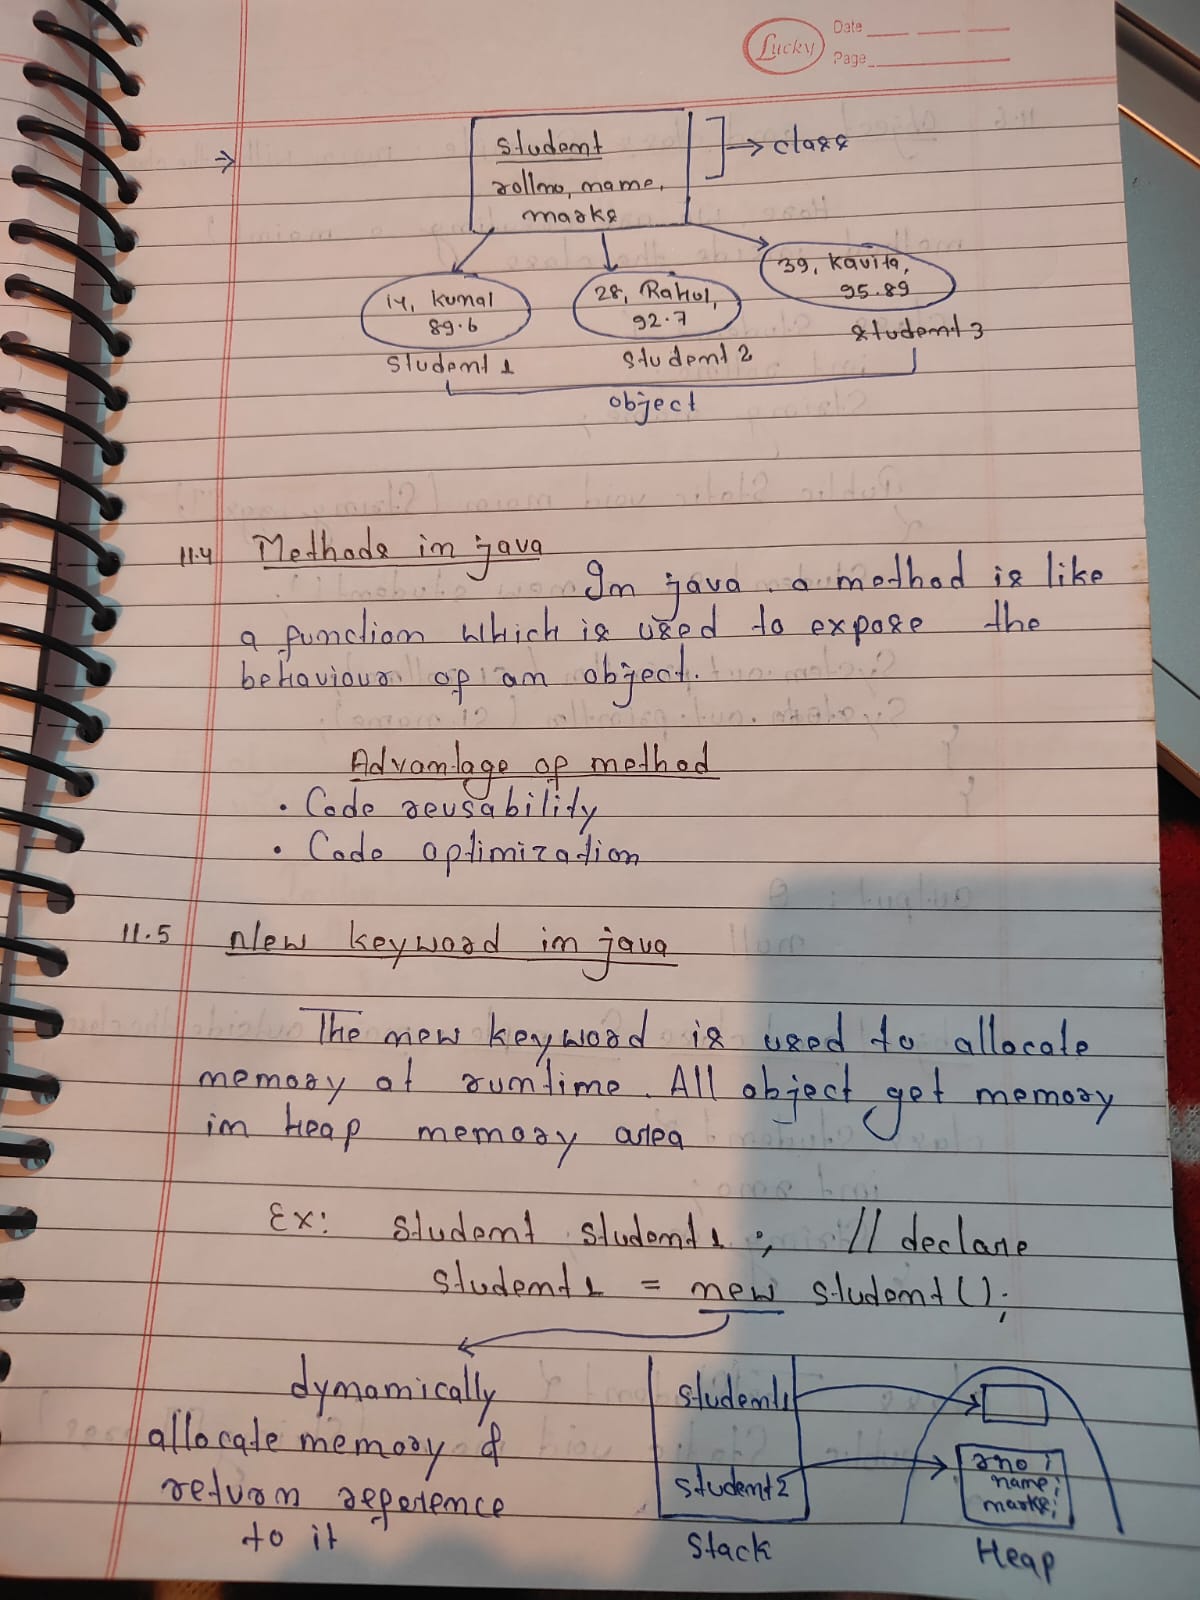 Lucky
Date
Page
student
rollno, name,
marks
→ class
14, Kunal
89.6
28, Rahul,
92.7
39, Kavita,
95.89
student 1
student 2
student 3
object
11.4 Methods in java
In java. a method is like
a function which is used to expose the
behaviour of an object.
Advantage of method
• Code reusability
• Code optimization
11.5 New keyword in java
The new keyword is used to allocate
memory at runtime. All object get memory
in heap memory area
Ex: student student1 ; // declare
student1 = new student();
dynamically
allocate memory &
return reference
to it
student1
student2
Stack
rno ;
name;
marks;
Heap